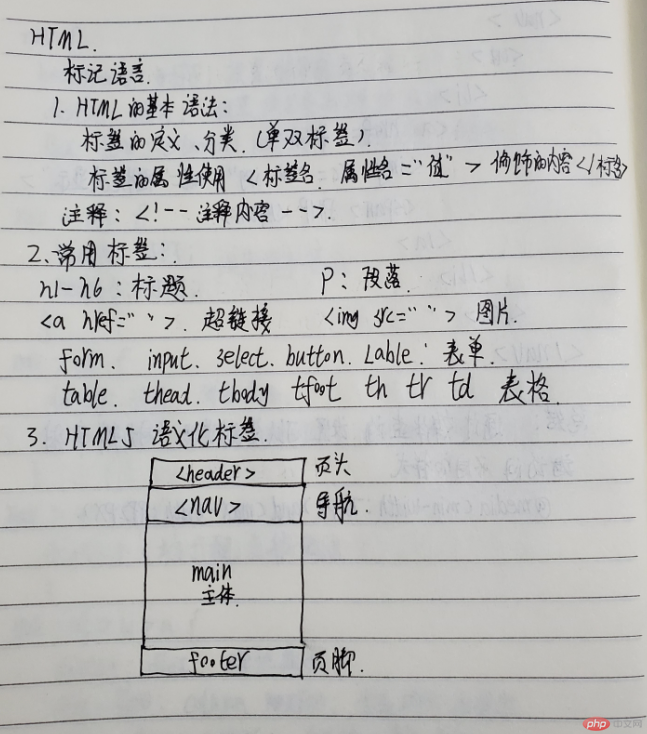 HTML.
标记语言.
1. HTML的基本语法:
标签的定义、分类.(单双标签).
标签的属性使用 <标签名 属性名="值"> 修饰的内容</标签名>
注释: <!-- 注释内容 -->.
2、常用标签:
h1-h6:标题. P:段落.
<a href=" ">. 超链接 <img src=" "> 图片.
form. input. select. button. Lable: 表单.
table. thead. tbody tfoot th tr td 表格.
3. HTML5 语义化标签.
<header> 页头
<nav> 导航.
main
主体.
footer 页脚.
php 中文网